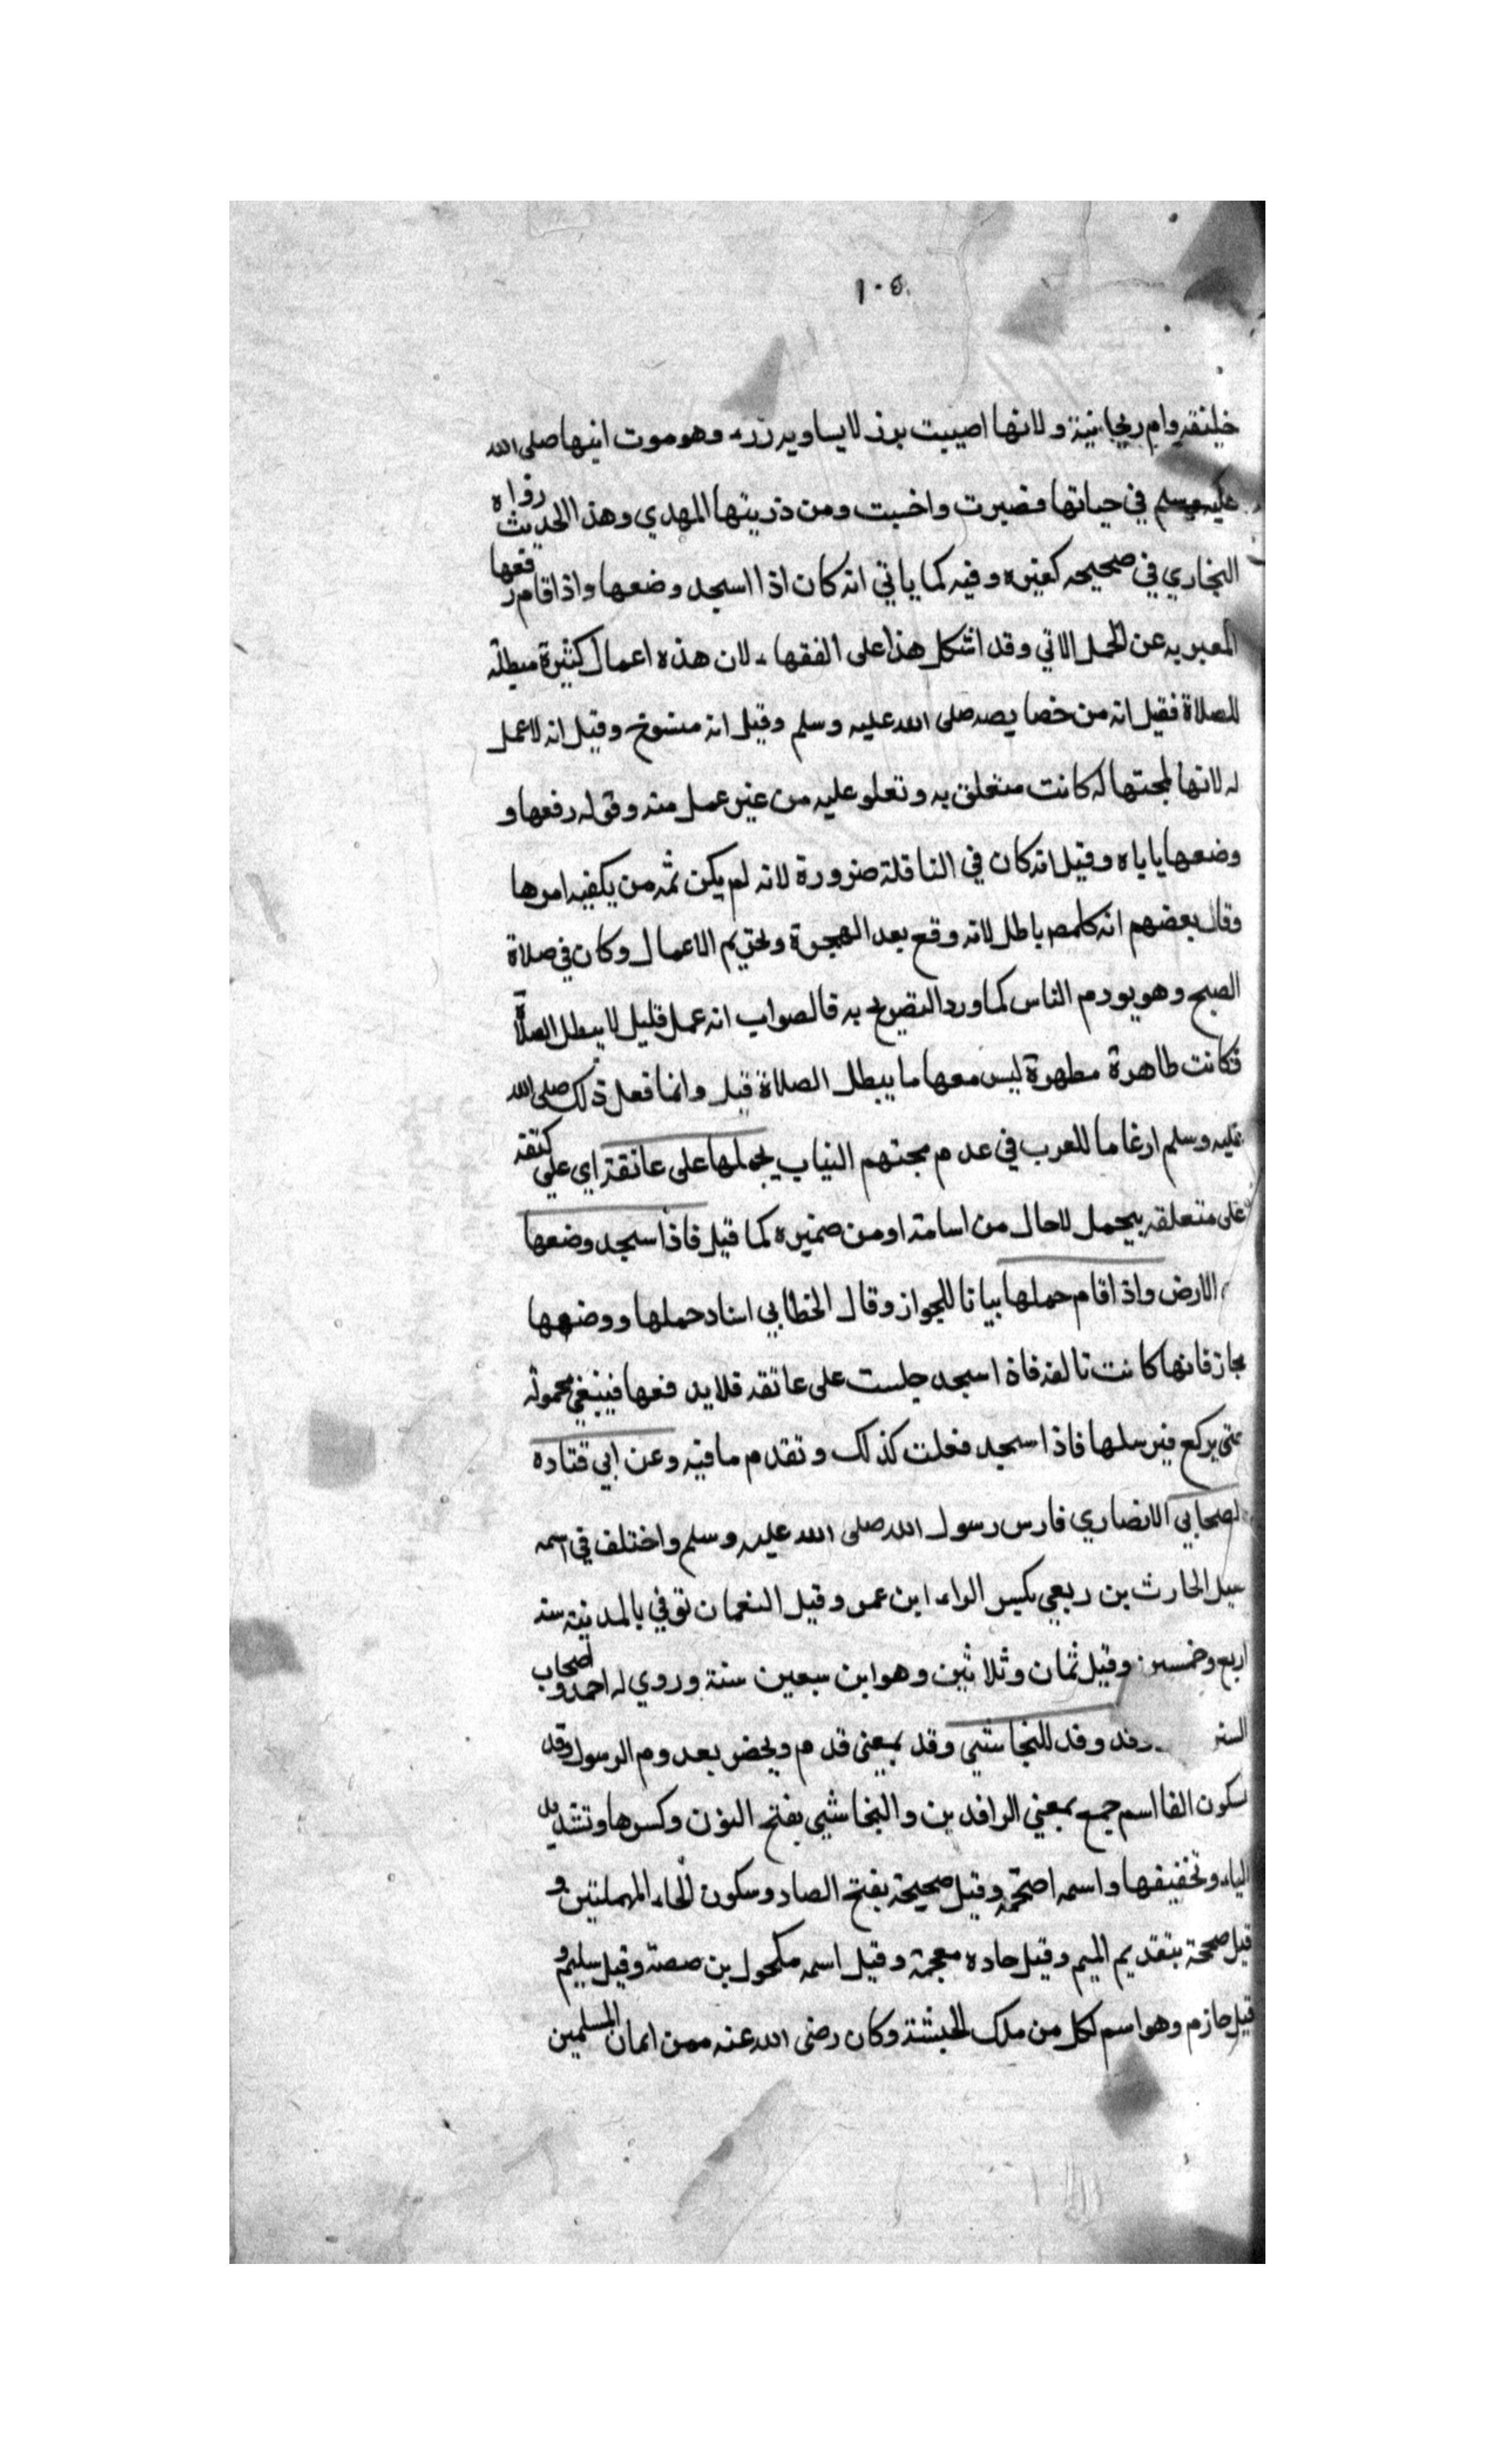 ١٠٥
وام ريحانية ولانها اصيبت برزء لايساويه رزء وهو موت ابيها صلى الله
عليه وسلم في حياتها فصبرت واحسبت ومن ذريتها المهدي وهذا الحديث رواه
البخاري في صحيحه كغيره وفيه كما ياتي انه كان اذا اسجد وضعها واذا قام رفعها
المعبر به عن الحمل الاتي وقد اشكل هذا على الفقهاء لان هذه اعمال كثيرة مبطلة
للصلاة فقيل انه من خصايصه صلى الله عليه وسلم وقيل انه منسوخ وقيل انه لاعمل
له لانها لمحبتها له كانت متعلق به وتعلو عليه من غير عمل منه وقوله رفعها و
وضعها ياباه وقيل انه كان في النافلة ضرورة لانه لم يكن ثمه من يكفيه امرها
وقال بعضهم انه كله باطل لانه وقع بعد الهجرة وتحريم الاعمال وكان في صلاة
الصبح وهو يودم الناس كما ورد التصريح به فالصواب انه عمل قليل لا يبطل الصلاة
فكانت طاهرة مطهرة ليس معها ما يبطل الصلاة قيل وانما فعل ذلك صلى الله
عليه وسلم ارغاما للعرب في عدم محبتهم البنات يحملها على عاتقه اي على كتفه
على متعلقه بيحمل لاحال من اسامة او من ضميره كما قيل فاذا سجد وضعها
الارض واذا قام حملها بيانا للجواز وقال الخطابي اسناد حملها ووضعها
مجاز فانها كانت تالفه فاذا سجد جلست على عاتقه فلا يدفعها فينبغي محموله
حتى يركع فيرسلها فاذا اسجد فعلت كذلك وتقدم مافيه وعن ابي قتاده
الصحابي الانصاري فارس رسول الله صلى الله عليه وسلم واختلف في اسمه
قيل الحارث بن ربعي بكسر الراء ابن عمر وقيل النعمان توفي بالمدينة سنه
اربع وخمسين وقيل ثمان وثلاثين وهو ابن سبعين سنة وروي له احمد واصحاب
السنن وفد وفد للنجاشي وفد بمعنى قدم ويخص بعدوم الرسول وفد
بسكون الفا اسم جمع بمعني الوافدين والنجاشي بفتح النون وكسرها وتشديد
الياء وتخفيفها واسمه اصحمة وقيل صحيحة بفتح الصاد وسكون الحاء المهملتين و
قيل صمحة بتقديم الميم وقيل حاده معجمة وقيل اسمه مكحول بن صصة وقيل سليم و
قيل حازم وهو اسم لكل من ملك الحبشة وكان رضى الله عنه ممن اعان المسلمين